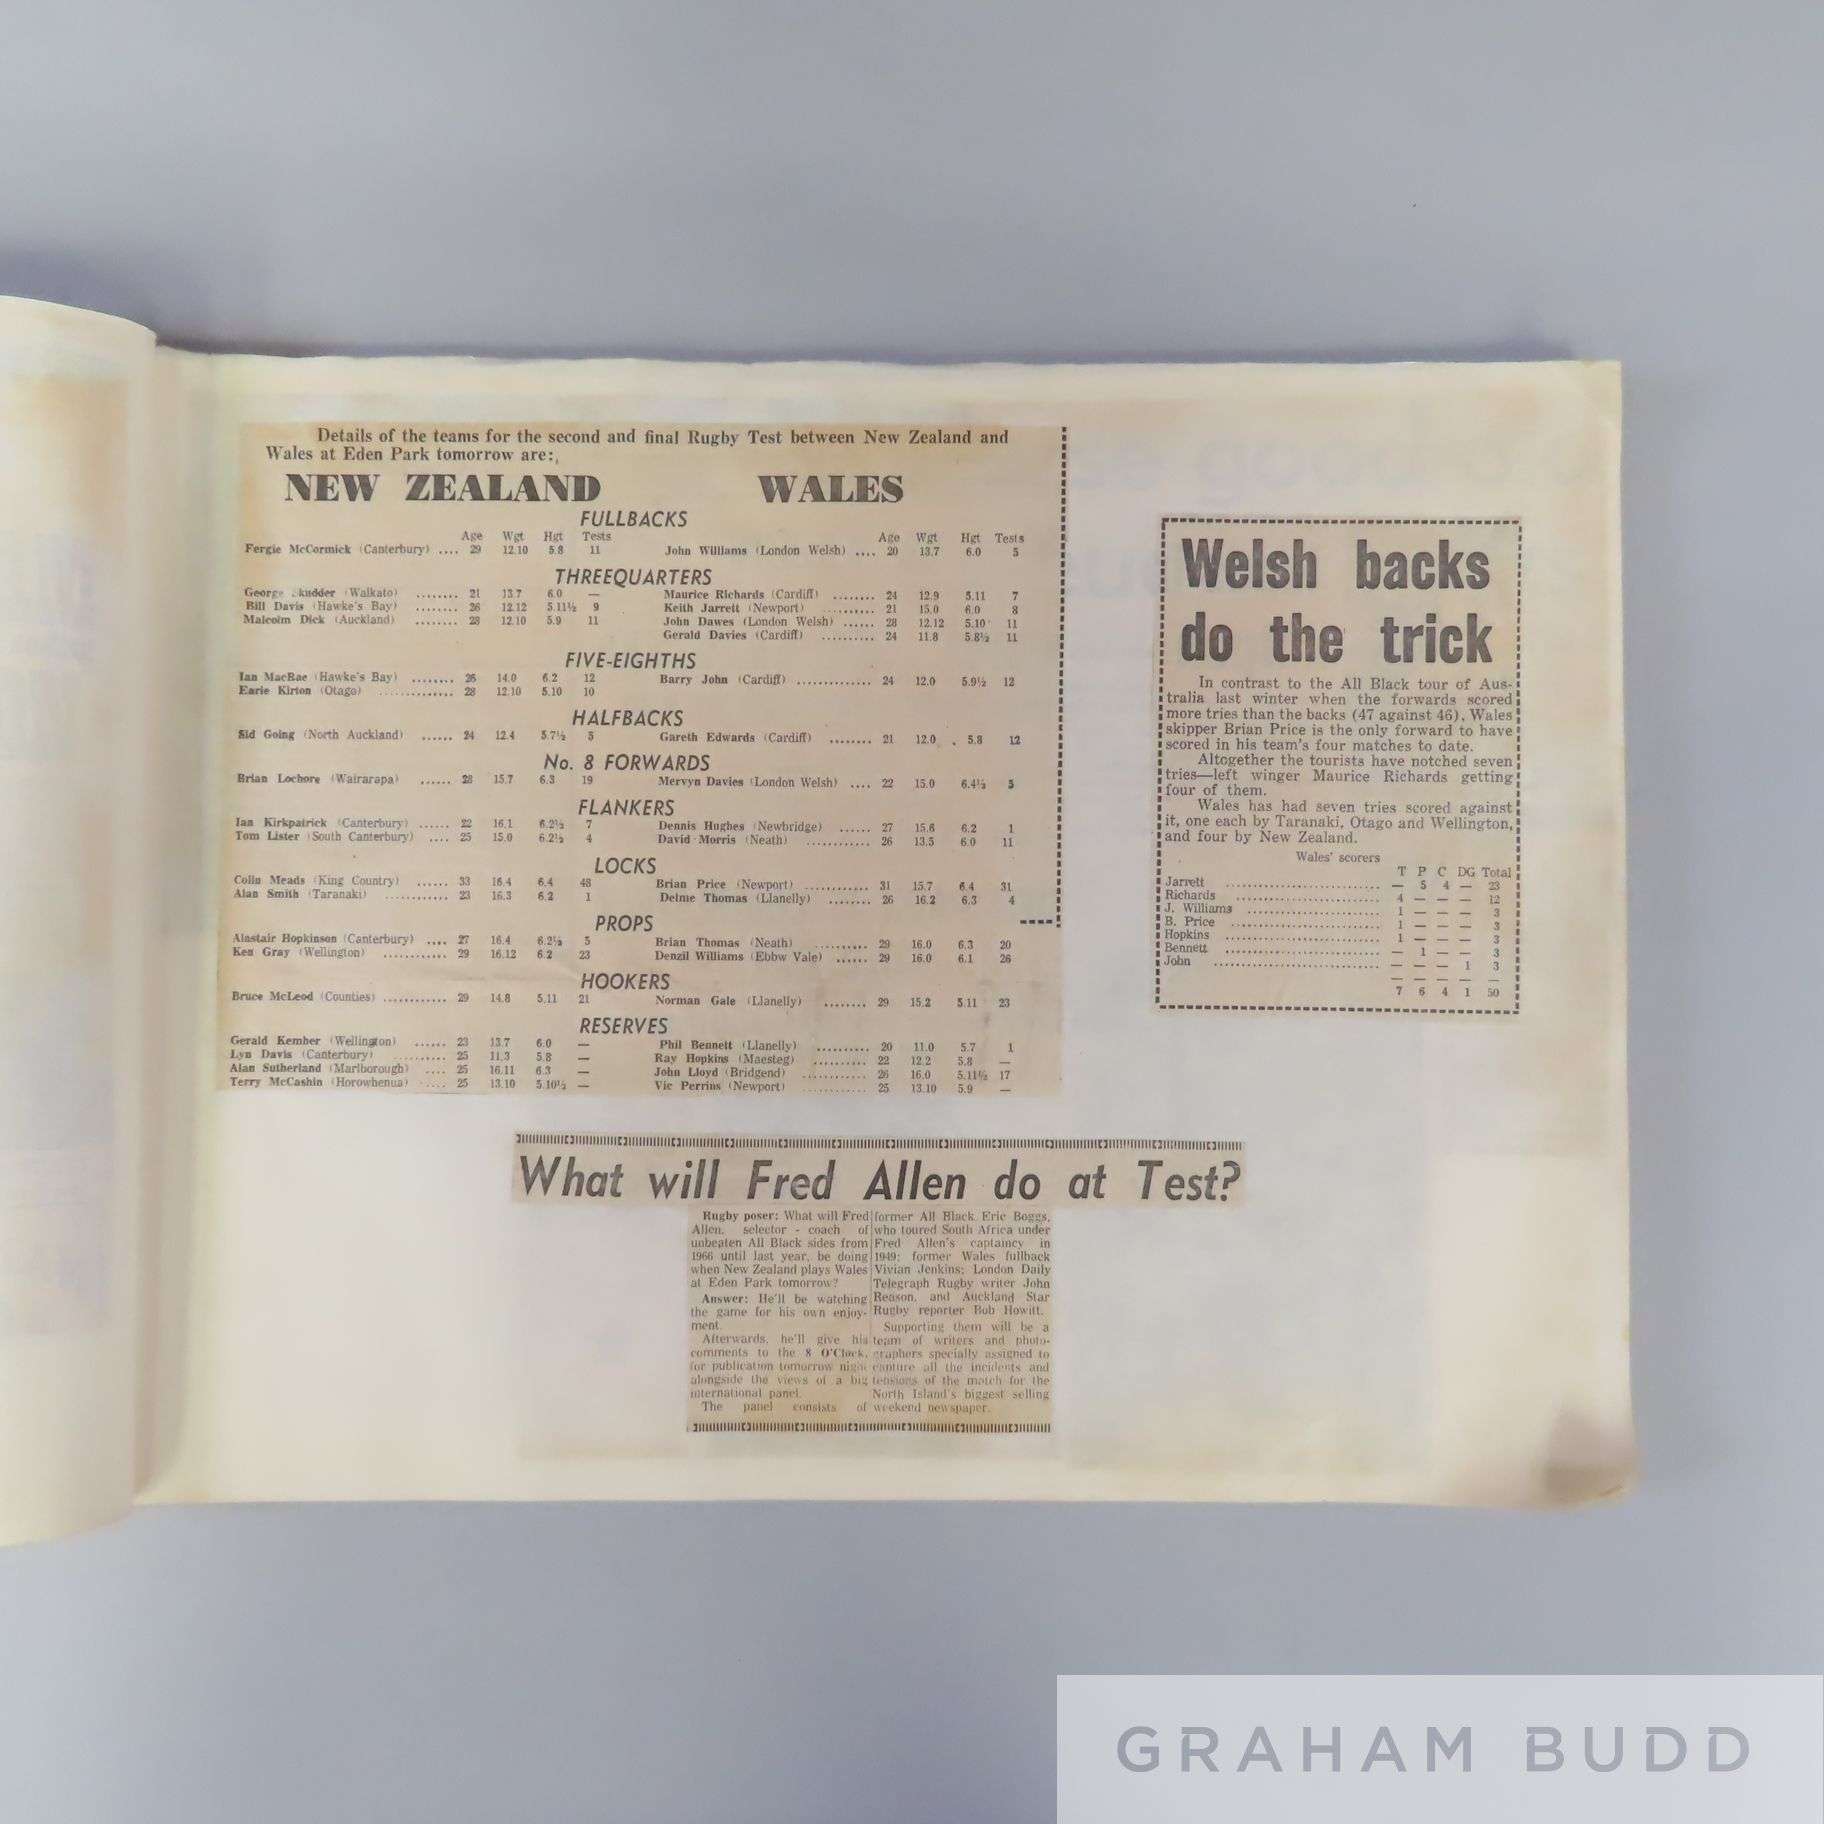 Details of the teams for the second and final Rugby Test between New Zealand and
Wales at Eden Park tomorrow are:
NEW ZEALAND WALES
FULLBACKS
Age Wgt Hgt Tests Age Wgt Hgt Tests
Fergie McCormick (Canterbury) .... 29 12.10 5.8 11 John Williams (London Welsh) .... 20 13.7 6.0 5
THREEQUARTERS
George kudder (Waikato) ........ 21 13.7 6.0 — Maurice Richards (Cardiff) ........ 24 12.9 5.11 7
Bill Davis (Hawke's Bay) ........ 26 12.12 5.11½ 9 Keith Jarrett (Newport) .......... 21 15.0 6.0 8
Malcolm Dick (Auckland) ........ 28 12.10 5.9 11 John Dawes (London Welsh) ...... 28 12.12 5.10 11
Gerald Davies (Cardiff) .......... 24 11.8 5.8½ 11
FIVE-EIGHTHS
Ian MacRae (Hawke's Bay) ........ 26 14.0 6.2 12 Barry John (Cardiff) .............. 24 12.0 5.9½ 12
Earle Kirton (Otago) .............. 28 12.10 5.10 10
HALFBACKS
Sid Going (North Auckland) ...... 24 12.4 5.7½ 5 Gareth Edwards (Cardiff) ........ 21 12.0 5.8 12
No. 8 FORWARDS
Brian Lochore (Wairarapa) ...... 28 15.7 6.3 19 Mervyn Davies (London Welsh) .... 22 15.0 6.4½ 5
FLANKERS
Ian Kirkpatrick (Canterbury) ...... 22 16.1 6.2½ 7 Dennis Hughes (Newbridge) ...... 27 15.6 6.2 1
Tom Lister (South Canterbury) .... 25 15.0 6.2½ 4 David Morris (Neath) ............ 26 13.5 6.0 11
LOCKS
Colin Meads (King Country) ...... 33 16.4 6.4 48 Brian Price (Newport) ............ 31 15.7 6.4 31
Alan Smith (Taranaki) ............ 23 16.3 6.2 1 Delme Thomas (Llanelly) ........ 26 16.2 6.3 4
PROPS
Alastair Hopkinson (Canterbury) .... 27 16.4 6.2½ 5 Brian Thomas (Neath) .......... 29 16.0 6.3 20
Ken Gray (Wellington) ............ 29 16.12 6.2 23 Denzil Williams (Ebbw Vale) ...... 29 16.0 6.1 26
HOOKERS
Bruce McLeod (Counties) ............ 29 14.8 5.11 21 Norman Gale (Llanelly) ........ 29 15.2 5.11 23
RESERVES
Gerald Kember (Wellington) ...... 23 13.7 6.0 — Phil Bennett (Llanelly) .......... 20 11.0 5.7 1
Lyn Davis (Canterbury) .......... 25 11.3 5.8 — Ray Hopkins (Maesteg) .......... 22 12.2 5.8 —
Alan Sutherland (Marlborough) .... 25 16.11 6.3 — John Lloyd (Bridgend) ............ 26 16.0 5.11½ 17
Terry McCashin (Horowhenua) .... 25 13.10 5.10½ — Vic Perrins (Newport) ............ 25 13.10 5.9 —
Welsh backs
do the trick
In contrast to the All Black tour of Aus-
tralia last winter when the forwards scored
more tries than the backs (47 against 46), Wales
skipper Brian Price is the only forward to have
scored in his team's four matches to date.
Altogether the tourists have notched seven
tries—left winger Maurice Richards getting
four of them.
Wales has had seven tries scored against
it, one each by Taranaki, Otago and Wellington,
and four by New Zealand.
Wales' scorers
T P C DG Total
Jarrett — 5 4 — 23
Richards 4 — — — 12
J. Williams 1 — — — 3
B. Price 1 — — — 3
Hopkins 1 — — — 3
Bennett — 1 — — 3
John — — — 1 3
7 6 4 1 50
What will Fred Allen do at Test?
Rugby poser: What will Fred
Allen, selector - coach of
unbeaten All Black sides from
1966 until last year, be doing
when New Zealand plays Wales
at Eden Park tomorrow?
Answer: He'll be watching
the game for his own enjoy-
ment.
Afterwards, he'll give his
comments to the 8 O'Clock,
for publication tomorrow night
alongside the views of a big
international panel.
The panel consists of
former All Black Eric Boggs,
who toured South Africa under
Fred Allen's captaincy in
1949; former Wales fullback
Vivian Jenkins; London Daily
Telegraph Rugby writer John
Reason, and Auckland Star
Rugby reporter Bob Howitt.
Supporting them will be a
team of writers and photo-
graphers specially assigned to
capture all the incidents and
tensions of the match for the
North Island's biggest selling
weekend newspaper.
GRAHAM BUDD